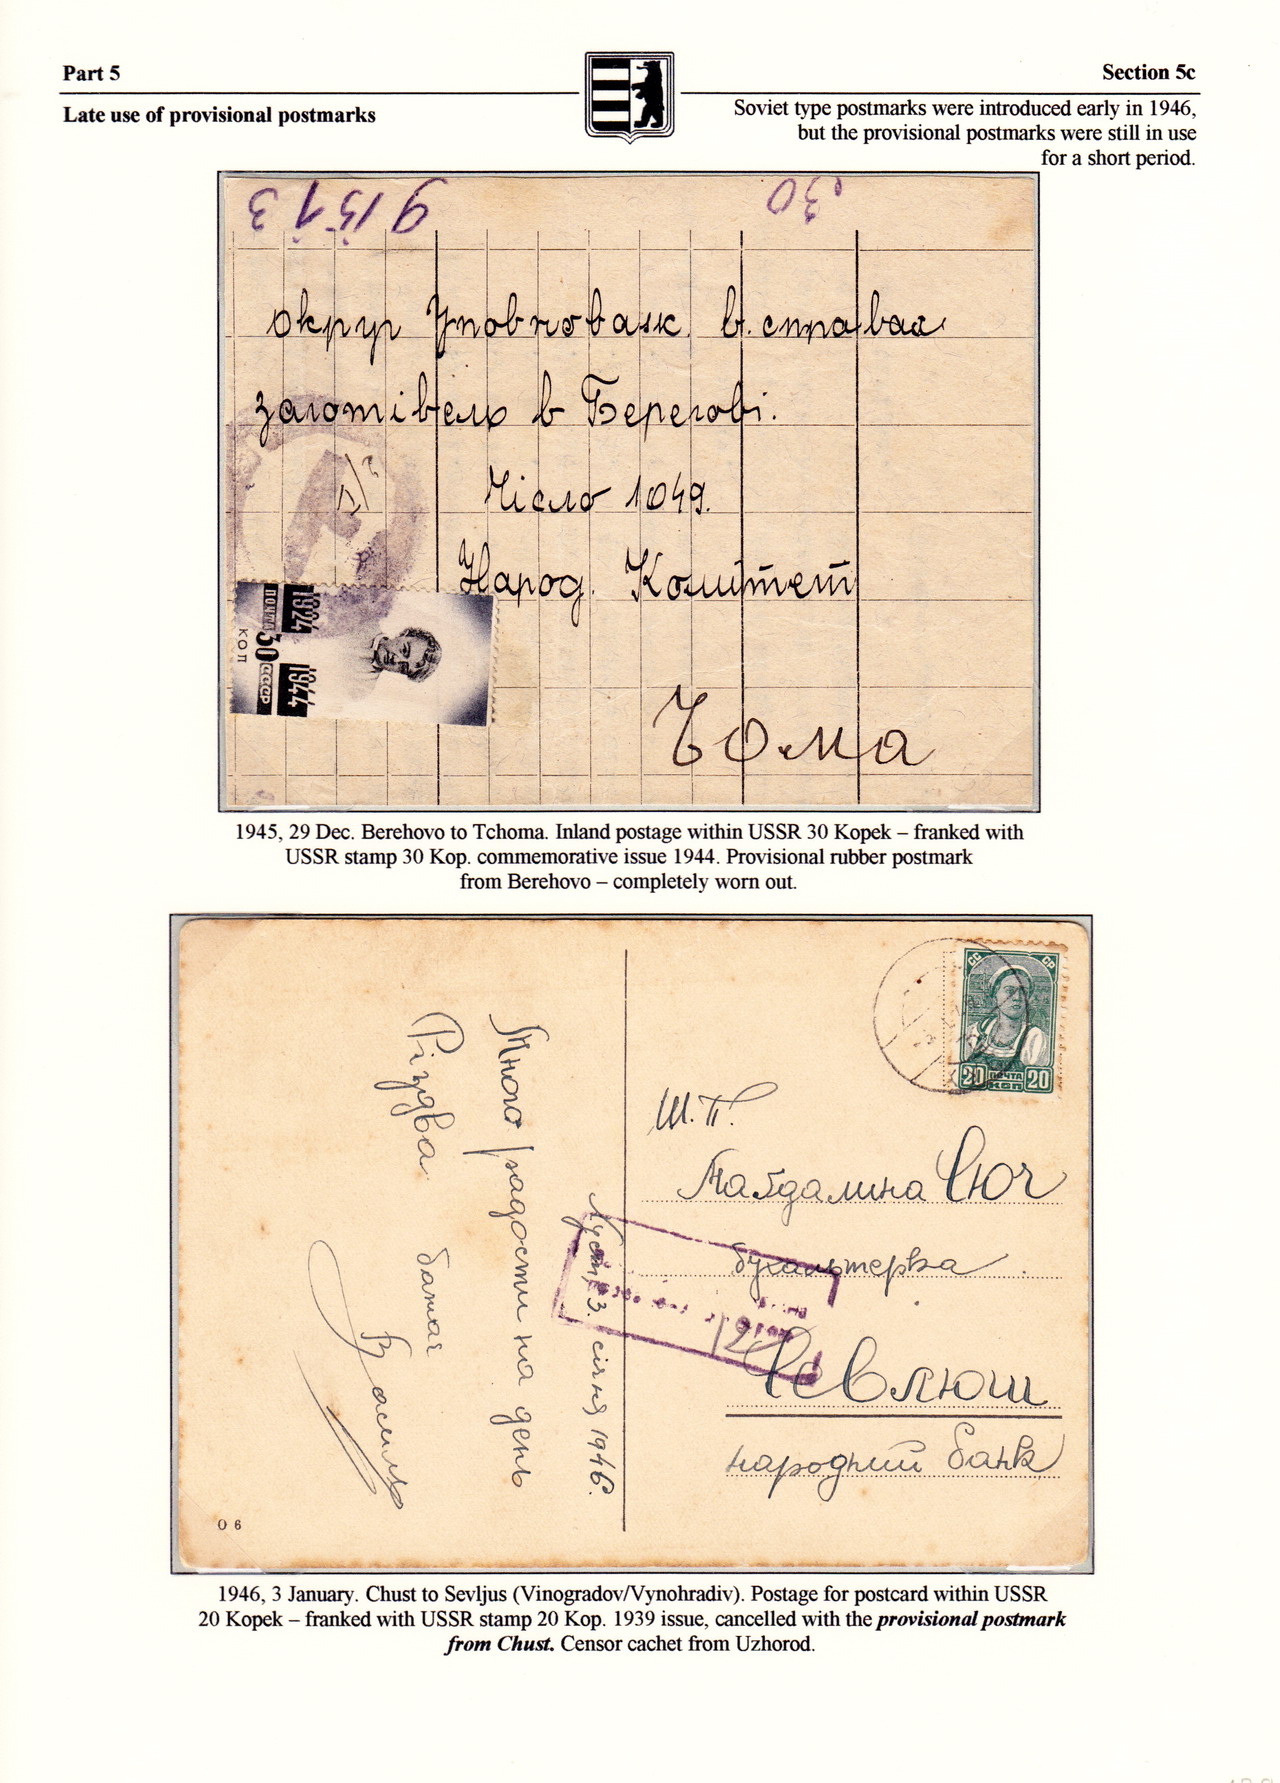 Part 5
Section 5c
Late use of provisional postmarks
Soviet type postmarks were introduced early in 1946,
but the provisional postmarks were still in use
for a short period.
30
округ Уповноваж. в. справах
заготівель в Берегові.
Число 1049.
Народ. Комітет
Чома
1924 1944
ПОЧТА 30 СССР
КОП
1945, 29 Dec. Berehovo to Tchoma. Inland postage within USSR 30 Kopek – franked with
USSR stamp 30 Kop. commemorative issue 1944. Provisional rubber postmark
from Berehovo – completely worn out.
СС СР
20 ПОЧТА КОП 20
Ш. П.
Маґдалина Сюч
бухгальтерка
Севлюш
народний банк
Хуст, 3. січня 1946.
Много радости на день
Різдва бажає
Василь
O 6
1946, 3 January. Chust to Sevljus (Vinogradov/Vynohradiv). Postage for postcard within USSR
20 Kopek – franked with USSR stamp 20 Kop. 1939 issue, cancelled with the provisional postmark
from Chust. Censor cachet from Uzhorod.